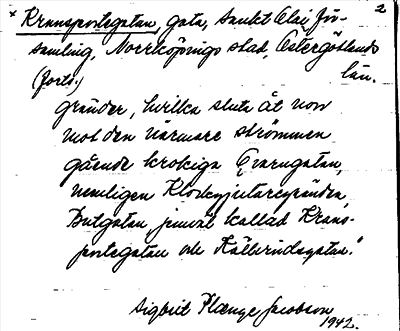 x Kransportegatan, gata, Sankt Olai för- 2
samling, Norrköpings stad, Östergötlands
(forts.) län.
gränder, hvilka sluta åt norr
mot den närmare strömmen
gående krokiga Qvarngatan,
nemligen Klockgjutaregränden,
Butgatan, jemväl kallad Krans-
portegatan och Källvindsgatan."
Sigbrit Plænge Jacobson
1942.